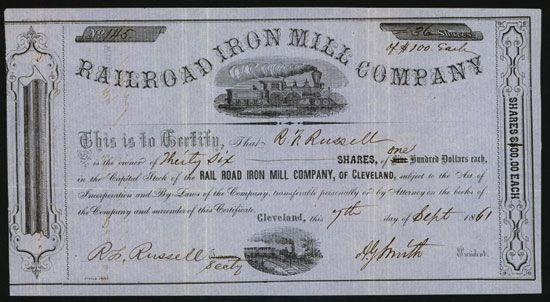 No. 145.
36 Shares
of $100. Each
RAILROAD IRON MILL COMPANY
This is to Certify, That R. F. Russell
is the owner of Thirty Six SHARES, of one Hundred Dollars each,
in the Capital Stock of the RAIL ROAD IRON MILL COMPANY, OF CLEVELAND, subject to the Act of
Incorporation and By-Laws of the Company, transferable personally or by Attorney on the books of
the Company and surrender of this Certificate.
Cleveland, this 7th day of Sept 1861
R. F. Russell Secty
A J Smith President.
SHARES $100.00 EACH.